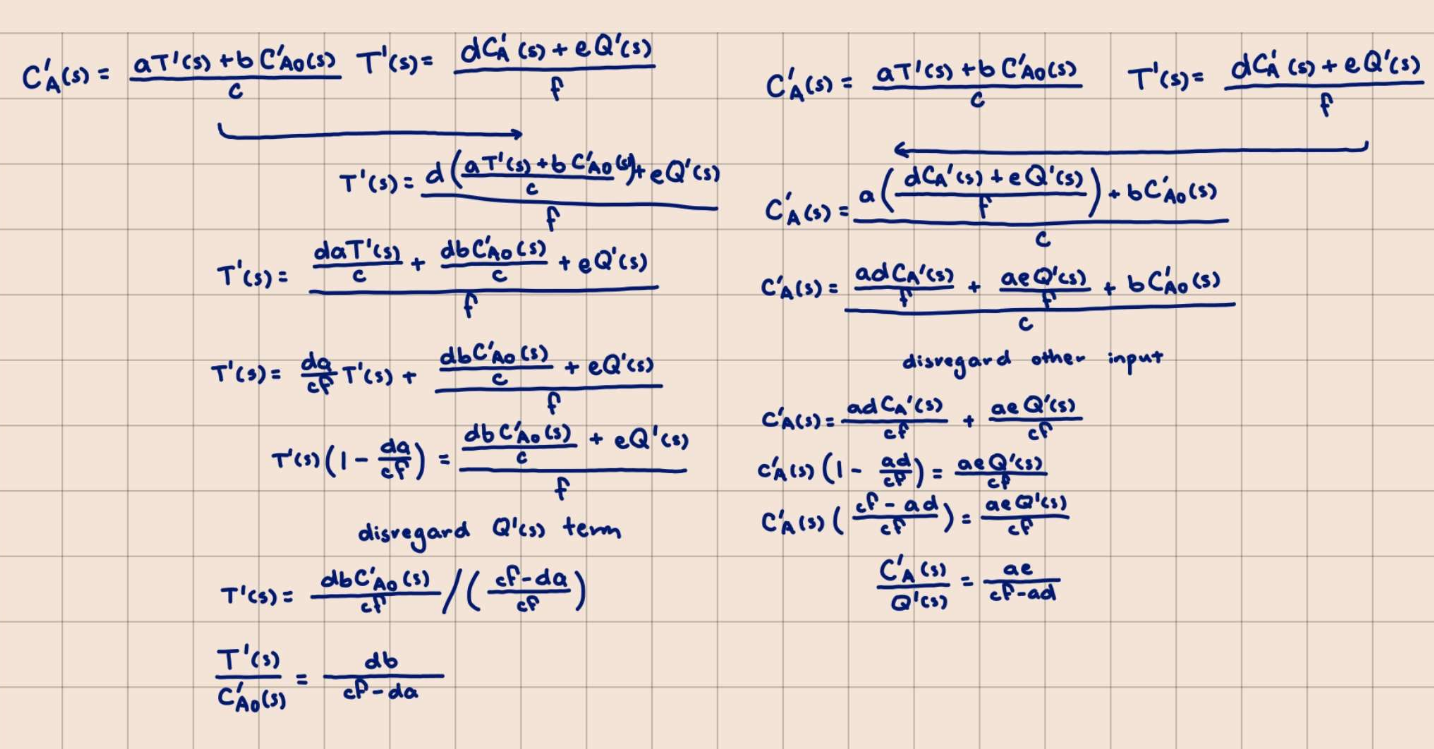 C'A(s) = (aT'(s) + bC'A0(s)) / c    T'(s) = (dC'A(s) + eQ'(s)) / f
T'(s) = (d((aT'(s) + bC'A0(s)) / c) + eQ'(s)) / f
T'(s) = (daT'(s)/c + dbC'A0(s)/c + eQ'(s)) / f
T'(s) = da/cf T'(s) + (dbC'A0(s)/c + eQ'(s)) / f
T'(s)(1 - da/cf) = (dbC'A0(s)/c + eQ'(s)) / f
disregard Q'(s) term
T'(s) = dbC'A0(s)/cf / ((cf-da)/cf)
T'(s)/C'A0(s) = db/(cf-da)
C'A(s) = (aT'(s) + bC'A0(s)) / c    T'(s) = (dC'A(s) + eQ'(s)) / f
C'A(s) = (a((dCA'(s) + eQ'(s)) / f) + bC'A0(s)) / c
C'A(s) = (adCA'(s)/f + aeQ'(s)/f + bC'A0(s)) / c
disregard other input
C'A(s) = adCA'(s)/cf + aeQ'(s)/cf
C'A(s)(1 - ad/cf) = aeQ'(s)/cf
C'A(s)((cf - ad)/cf) = aeQ'(s)/cf
C'A(s)/Q'(s) = ae/(cf-ad)